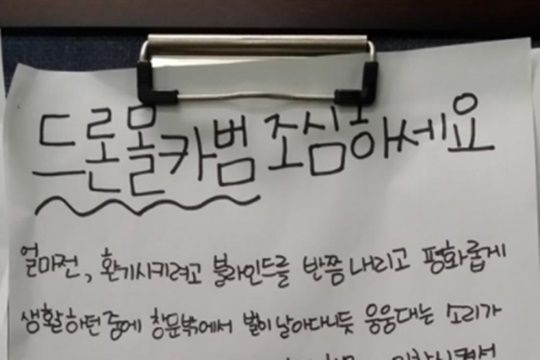 드론몰카범 조심하세요
얼마전, 환기시키려고 블라인드를 반쯤 내리고 평화롭게
생활하던 중에 창문밖에서 벌이 날아다니듯 웅웅대는 소리가